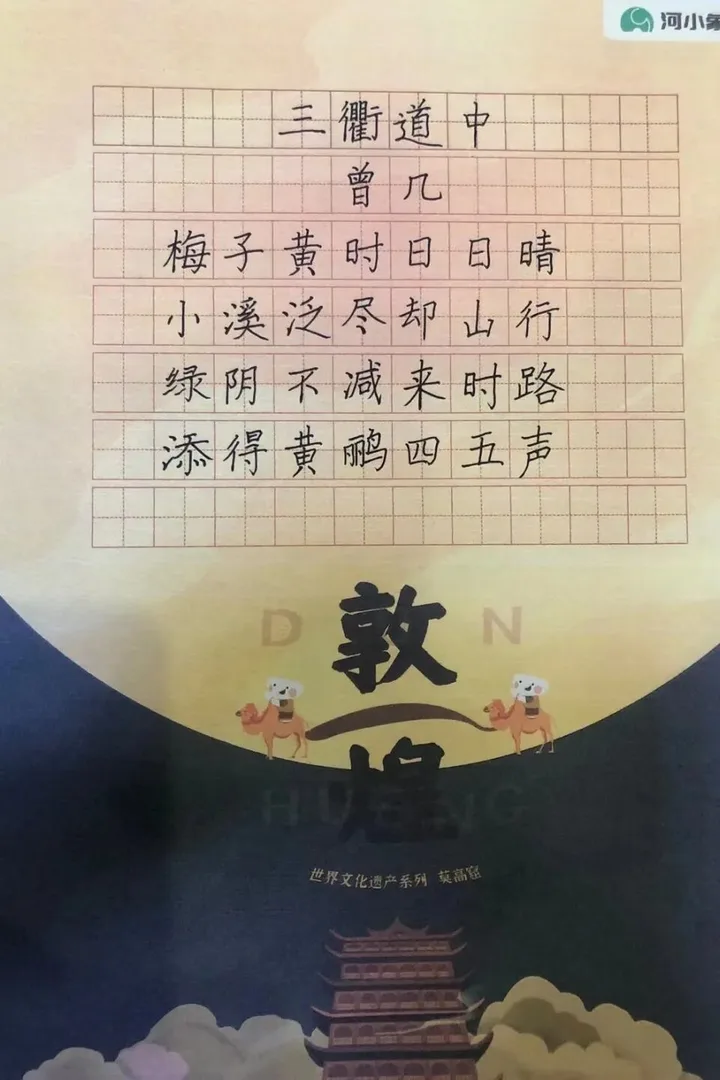 河小象
三衢道中
曾几
梅子黄时日日晴
小溪泛尽却山行
绿阴不减来时路
添得黄鹂四五声
D N
敦
煌
HUANG
世界文化遗产系列 莫高窟